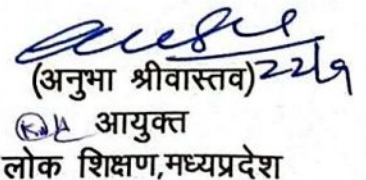 (अनुभा श्रीवास्तव) 22/9
आयुक्त
लोक शिक्षण,मध्यप्रदेश